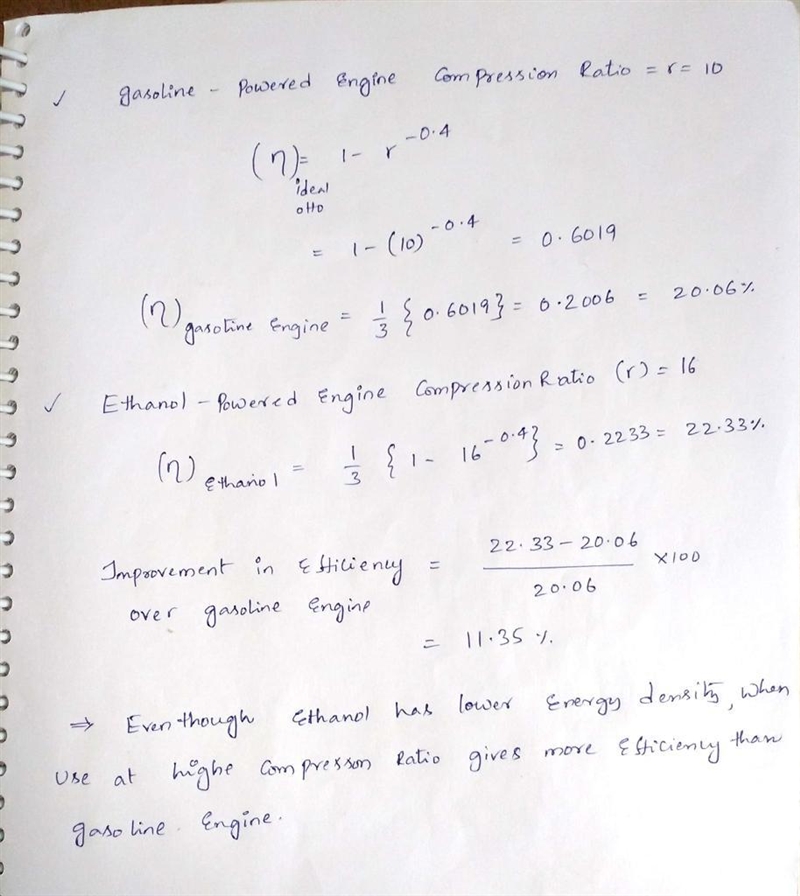 ✓ gasoline - Powered Engine Compression Ratio = r = 10
(η)ideal otto = 1 - r^-0.4
= 1 - (10)^-0.4 = 0.6019
(η)gasoline Engine = 1/3 { 0.6019 } = 0.2006 = 20.06%
✓ Ethanol - Powered Engine Compression Ratio (r) = 16
(η)Ethanol = 1/3 { 1 - 16^-0.4 } = 0.2233 = 22.33%
Improvement in Efficiency over gasoline Engine = (22.33 - 20.06)/20.06 × 100
= 11.35 %
⇒ Eventhough Ethanol has lower Energy density, when
Use at highe Compresson Ratio gives more Efficiency than
gasoline Engine.